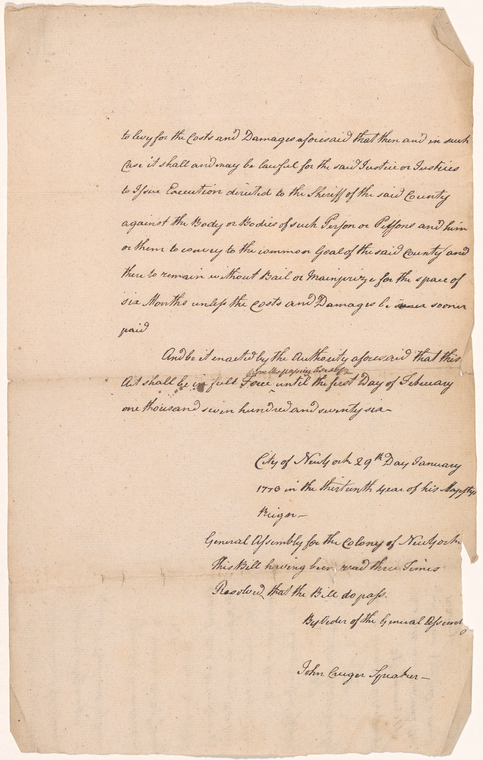 to levy for the Costs and Damages aforesaid that then and in such
Case it shall and may be lawful for the said Justice or Justices
to Issue Execution directed to the Sheriff of the said County
against the Body or Bodies of such Person or Persons and him
or them to convey to the common Goal of the said County and
there to remain without Bail or Mainprize for the space of
six Months unless the Costs and Damages be sooner
paid
And be it enacted by the Authority aforesaid that this
from the passing thereof
Act shall be in full Force until the first Day of February
one thousand seven hundred and seventy six
City of New York 29th Day January
1773 in the thirteenth year of his Majestys
Reign
General Assembly for the Colony of New York
This Bill having been read three Times
Resolved, that the Bill do pass.
By Order of the General Assembl
John Cruger Speaker